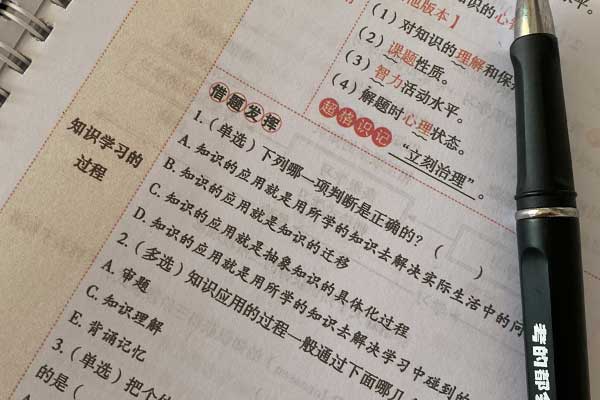 识的心
水平。
他版本】
(1)对知识的理解和保
(2)课题性质。
(3)智力活动水平。
(4)解题时心理状态。
超格识记 “立刻治理”。
知识学习的
过程
借题发挥
1.(单选)下列哪一项判断是正确的?( )
A. 知识的应用就是用所学的知识去解决实际生活中的问
B. 知识的应用就是知识的迁移
C. 知识的应用就是抽象知识的具体化过程
D. 知识的应用就是用所学的知识去解决学习中碰到的
2.(多选)知识应用的过程一般通过下面哪几
A. 审题
C. 知识理解
E. 背诵记忆
3.(单选)把个
的是(
考的都